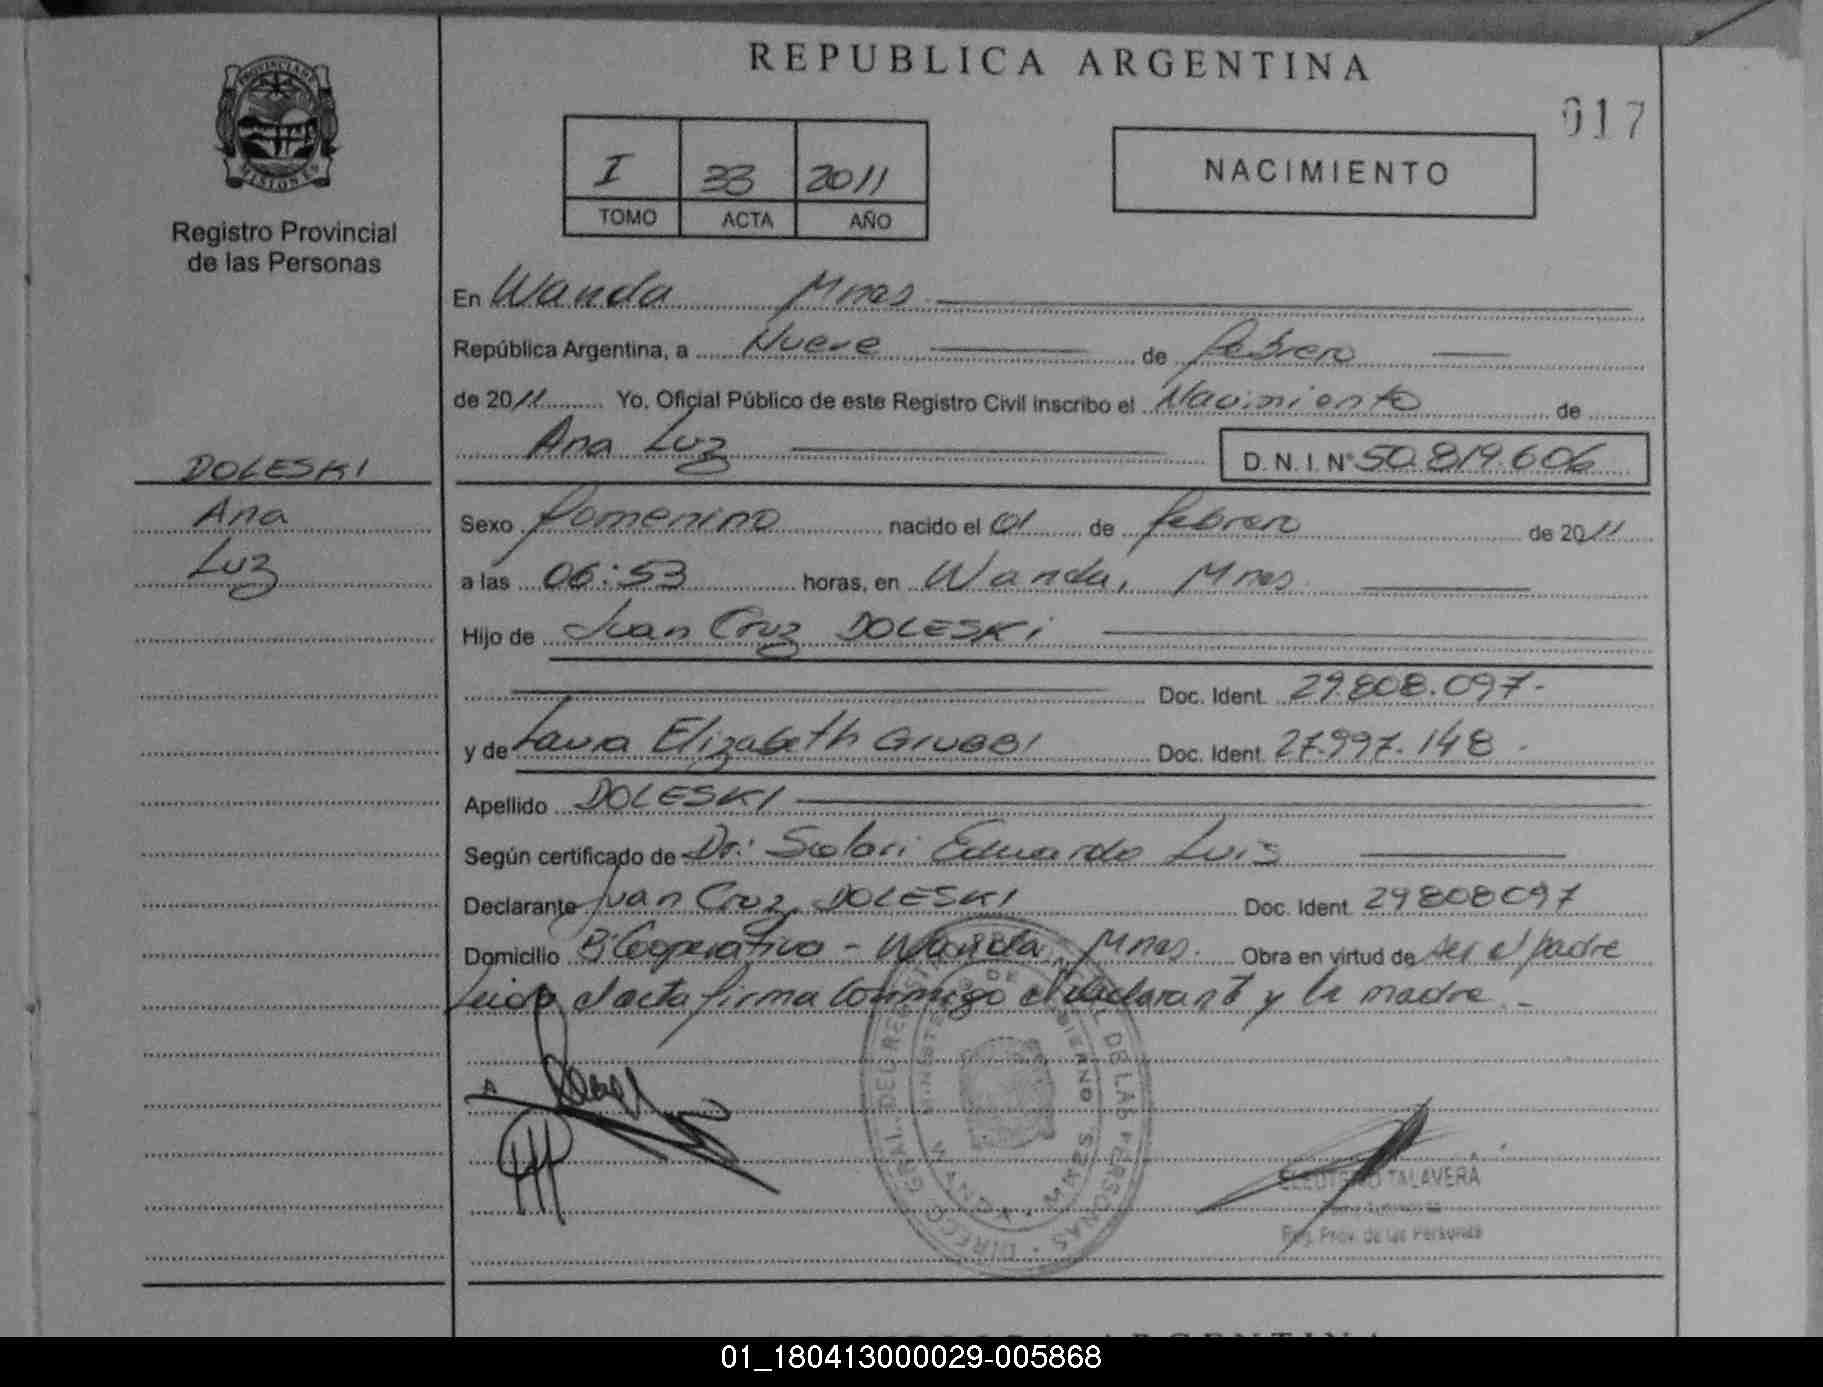 REPUBLICA ARGENTINA
017
PROVINCIA DE MISIONES
Registro Provincial
de las Personas
I 33 2011
TOMO ACTA AÑO
NACIMIENTO
En Wanda Mnes.
República Argentina, a Nueve de febrero
de 2011 Yo, Oficial Público de este Registro Civil inscribo el Nacimiento de
Ana Luz D.N.I. N° 50.819.606
DOLESKI
Ana
Luz
Sexo femenino nacido el 01 de febrero de 2011
a las 06:53 horas, en Wanda, Mnes.
Hijo de Juan Cruz DOLESKI
Doc. Ident. 29.808.097.-
y de Laura Elizabeth GIUBBI Doc. Ident. 27.997.148.
Apellido DOLESKI
Según certificado de Dr. Scolari Eduardo Luis
Declarante Juan Cruz DOLESKI Doc. Ident. 29808097
Domicilio B° Cooperativa - Wanda, Mnes. Obra en virtud de ser el padre
Leida el acta firma conmigo el declarant y la madre.-
DIRECC. GRAL. DEL REGISTRO PROVINCIAL DE LAS PERSONAS
MINISTERIO DE GOBIERNO
WANDA - MNES.
ELEUTERIO TALAVERA
Reg. Prov. de las Personas
REPUBLICA ARGENTINA
01_180413000029-005868